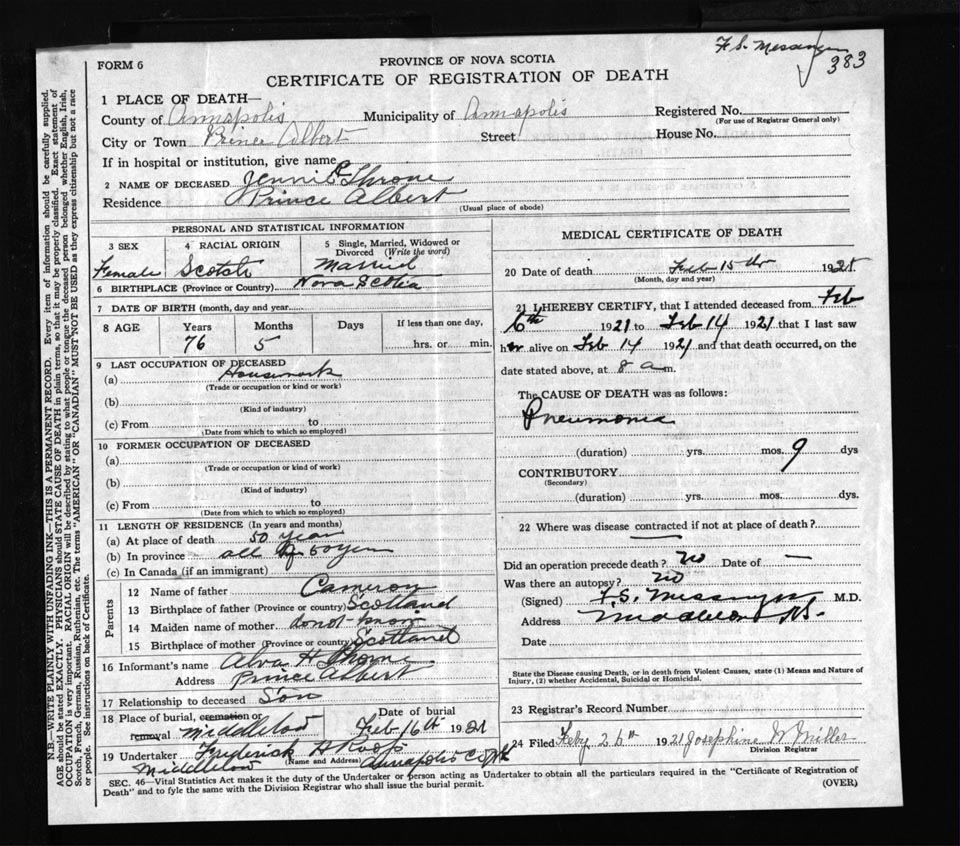 F. S. Messenger
383
FORM 6
PROVINCE OF NOVA SCOTIA
CERTIFICATE OF REGISTRATION OF DEATH
1 PLACE OF DEATH—
County of Annapolis Municipality of Annapolis Registered No.
(For use of Registrar General only)
City or Town Prince Albert Street House No.
If in hospital or institution, give name
2 NAME OF DECEASED Jennie Throne
Residence Prince Albert
(Usual place of abode)
PERSONAL AND STATISTICAL INFORMATION
3 SEX 4 RACIAL ORIGIN 5 Single, Married, Widowed or Divorced (Write the word)
Female Scotch Married
6 BIRTHPLACE (Province or Country) Nova Scotia
7 DATE OF BIRTH (month, day and year)
8 AGE Years Months Days If less than one day,
76 5 hrs. or min.
9 LAST OCCUPATION OF DECEASED
(a) Housework
(Trade or occupation or kind or work)
(b)
(Kind of industry)
(c) From to
(Date from which to which so employed)
10 FORMER OCCUPATION OF DECEASED
(a)
(Trade or occupation or kind of work)
(b)
(Kind of industry)
(c) From to
(Date from which to which so employed)
11 LENGTH OF RESIDENCE (In years and months)
(a) At place of death 50 years
(b) In province all
(c) In Canada (if an immigrant)
Parents
12 Name of father Cameron
13 Birthplace of father (Province or country) Scotland
14 Maiden name of mother dond know
15 Birthplace of mother (Province or country) Scotland
16 Informant's name Alva H Throne
Address Prince Albert
17 Relationship to deceased Son
18 Place of burial, cremation or removal Middleton Date of burial Feb 16th 1921
19 Undertaker Frederick H Roop
(Name and Address)
Middleton Annapolis Co
MEDICAL CERTIFICATE OF DEATH
20 Date of death Feb 15th 1921
(Month, day and year)
21 I HEREBY CERTIFY, that I attended deceased from Feb
6th 1921 to Feb 14 1921 that I last saw
her alive on Feb 14 1921 and that death occurred, on the
date stated above, at 8 a m.
The CAUSE OF DEATH was as follows:
Pneumonia
(duration) yrs. mos. 9 dys
CONTRIBUTORY
(Secondary)
(duration) yrs. mos. dys.
22 Where was disease contracted if not at place of death?
Did an operation precede death? no Date of —
Was there an autopsy? no
(Signed) F. S. Messenger M.D.
Address Middleton N.S.
Date
State the Disease causing Death, or in death from Violent Causes, state (1) Means and Nature of
Injury, (2) whether Accidental, Suicidal or Homicidal.
23 Registrar's Record Number
24 Filed Feby 26th 1921 Josephine W Miller
Division Registrar
SEC. 46—Vital Statistics Act makes it the duty of the Undertaker or person acting as Undertaker to obtain all the particulars required in the "Certificate of Registration of
Death" and to fyle the same with the Division Registrar who shall issue the burial permit.
(OVER)
N.B.—WRITE PLAINLY WITH UNFADING INK—THIS IS A PERMANENT RECORD. Every item of information should be carefully supplied.
AGE should be stated EXACTLY. PHYSICIANS should STATE CAUSE OF DEATH in plain terms, so that it may be properly classified. Exact statement of
OCCUPATION is very important. RACIAL ORIGIN will be described by stating to what people or tongue the deceased person belonged, whether English, Irish,
Scotch, French, German, Russian, Ruthenian, etc. The terms "AMERICAN" OR "CANADIAN" MUST NOT BE USED as they express citizenship but not a race
or people. See instructions on back of Certificate.